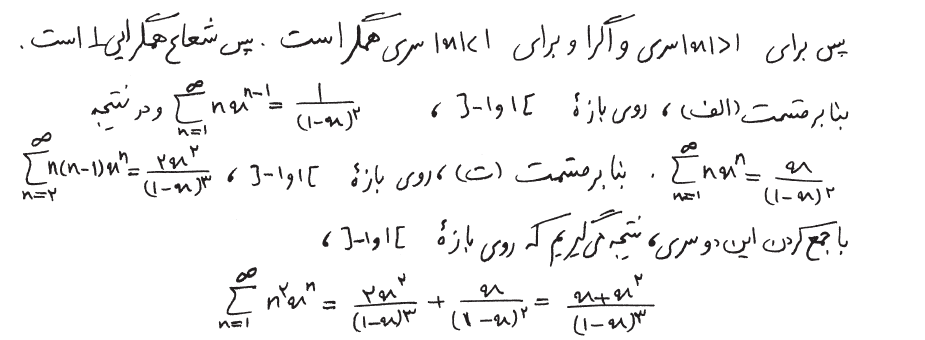 پس برای |x|>1 سری واگرا و برای |x|<1 سری همگرا است. پس شعاع همگرایی 1 است.
بنا بر قسمت (الف)، روی بازهٔ ]-1و1[ ، \sum_{n=1}^{\infty} n x^{n-1} = \frac{1}{(1-x)^۲} و در نتیجه
\sum_{n=1}^{\infty} n x^n = \frac{x}{(1-x)^۲} . بنا بر قسمت (ت)، روی بازهٔ ]-1و1[ ، \sum_{n=۲}^{\infty} n(n-1)x^n = \frac{۲x^۲}{(1-x)^۳}
با جمع کردن این دو سری، نتیجه می‌گیریم که روی بازهٔ ]-1و1[ ،
\sum_{n=1}^{\infty} n^۲ x^n = \frac{۲x^۲}{(1-x)^۳} + \frac{x}{(1-x)^۲} = \frac{x+x^۲}{(1-x)^۳}